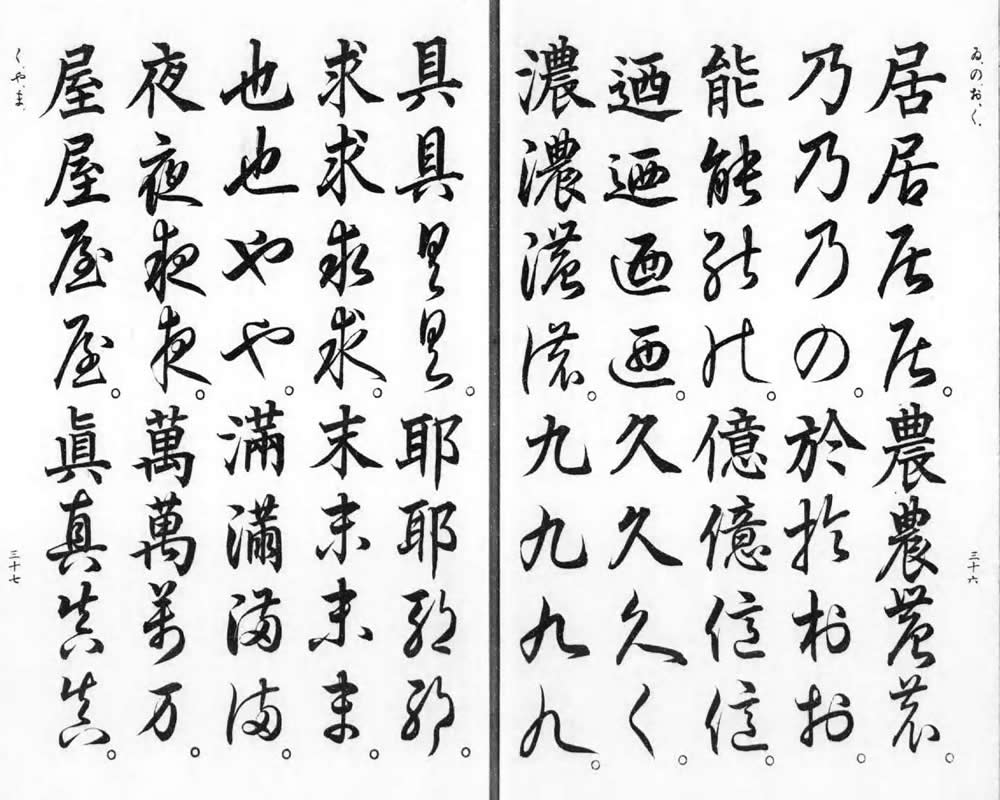 ゐ、の、お、く、
三十六
居居居居。農農農農。
乃乃乃の。於於於お。
能能能能。億億億億。
迺迺迺迺。久久久く。
濃濃濃濃。九九九九。
具具具具。耶耶耶耶。
求求求求。末末末ま。
也也やや。滿滿满满。
夜夜夜夜。萬萬萬万。
屋屋屋屋。眞真真真。
く、や、ま、
三十七